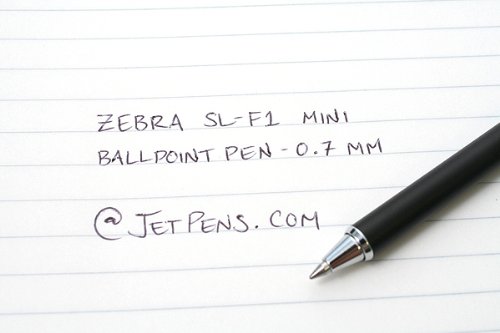 ZEBRA SL-F1 MINI
BALLPOINT PEN - 0.7 MM
@JETPENS.COM